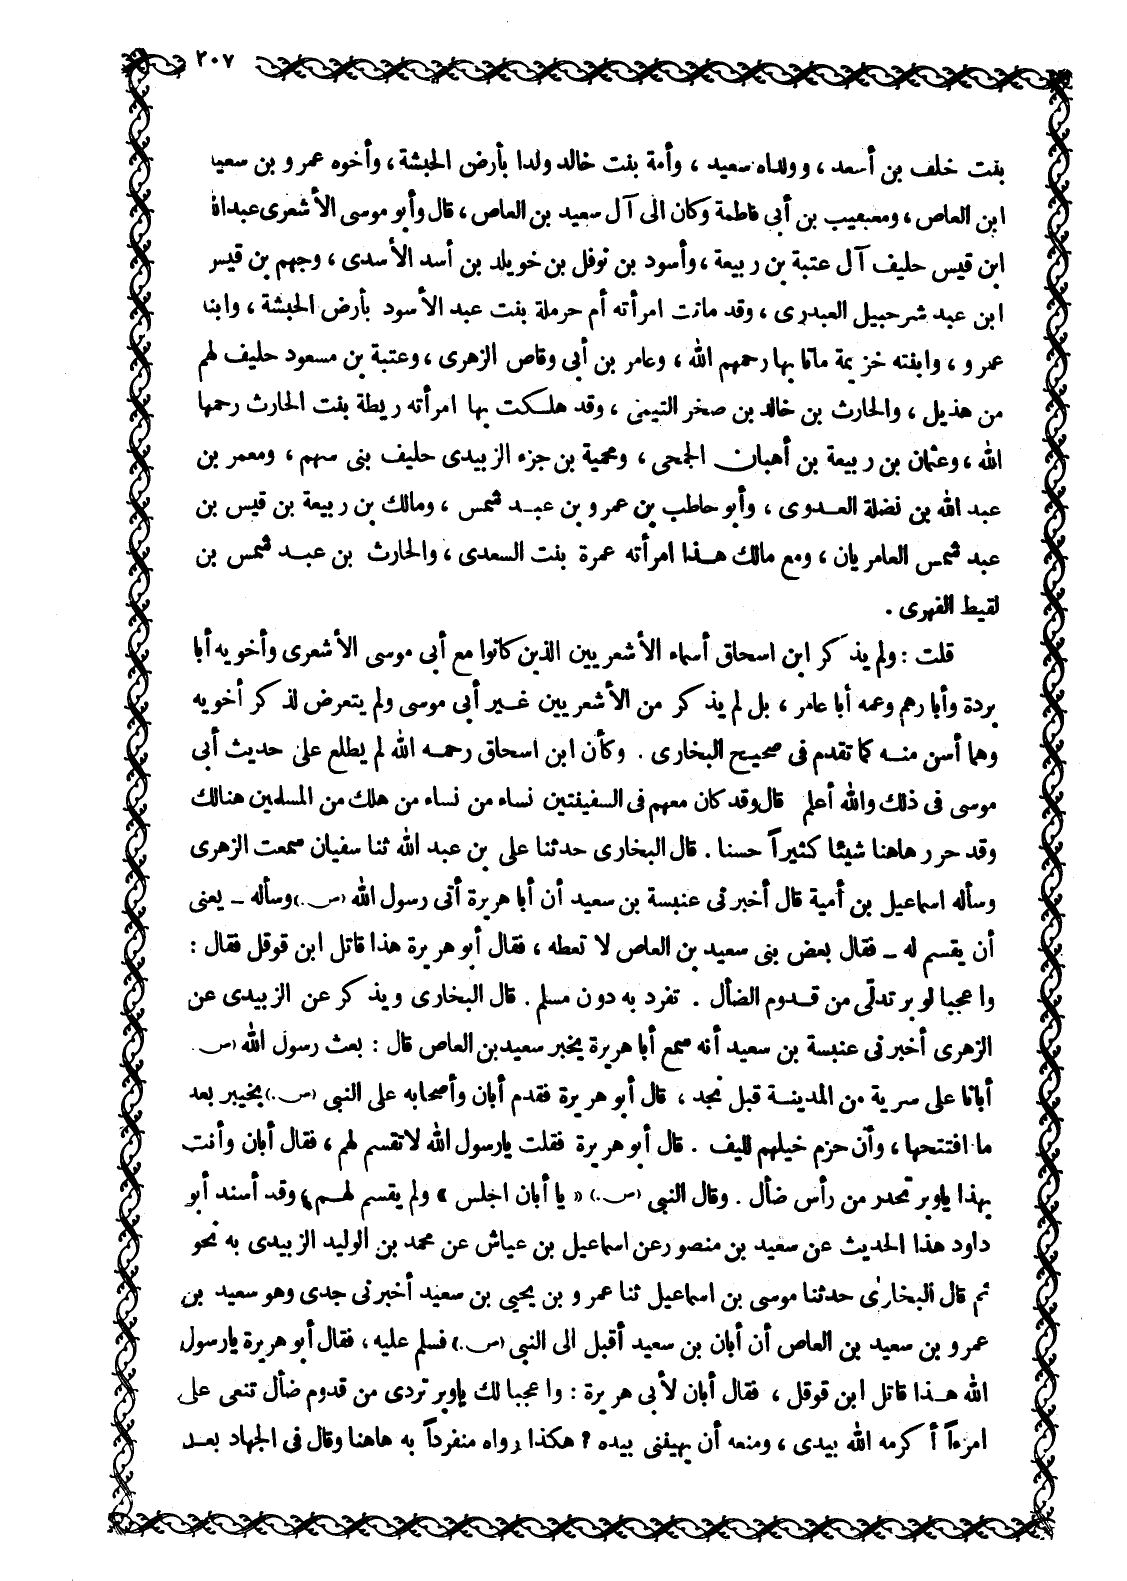 ٢٠٧
بنت خلف بن أسعد ، وولداه سعيد ، وأمة بنت خالد ولدا بأرض الحبشة ، وأخوه عمرو بن سعيد
ابن العاص ، ومعيقيب بن أبى فاطمة وكان الى آل سعيد بن العاص ، قال وأبو موسى الأشعرى عبدالله
ابن قيس حليف آل عتبة بن ربيعة ، وأسود بن نوفل بن خويلد بن أسد الأسدى ، وجهم بن قيس
ابن عبد شرحبيل العبدرى ، وقد ماتت امرأته أم حرملة بنت عبد الأسود بأرض الحبشة ، وابنه
عمرو ، وابنته خزيمة ماتا بها رحمهم الله ، وعامر بن أبى وقاص الزهرى ، وعتبة بن مسعود حليف لهم
من هذيل ، والحارث بن خالد بن صخر التيمى ، وقد هلكت بها امرأته ريطة بنت الحارث رحمها
الله ، وعثمان بن ربيعة بن أهبان الجمحى ، ومحمية بن جزء الزبيدى حليف بنى سهم ، ومعمر بن
عبد الله بن نضلة العدوى ، وأبو حاطب بن عمرو بن عبد شمس ، ومالك بن ربيعة بن قيس بن
عبد شمس العامريان ، ومع مالك هذا امرأته عمرة بنت السعدى ، والحارث بن عبد شمس بن
لقيط الفهرى .
قلت : ولم يذكر ابن اسحاق أسماء الأشعريين الذين كانوا مع أبى موسى الأشعرى وأخويه أبا
بردة وأبا رهم وعمه أبا عامر ، بل لم يذكر من الأشعريين غير أبى موسى ولم يتعرض لذكر أخويه
وهما أسن منه كما تقدم فى صحيح البخارى . وكأن ابن اسحاق رحمه الله لم يطلع على حديث أبى
موسى فى ذلك والله أعلم قال وقد كان معهم فى السفينتين نساء من نساء من هلك من المسلمين هنالك
وقد حرر هاهنا شيئا كثيراً حسنا . قال البخارى حدثنا على بن عبد الله ثنا سفيان سمعت الزهرى
وسأله اسماعيل بن أمية قال أخبرنى عنبسة بن سعيد أن أبا هريرة أتى رسول الله (ص.) وسأله ــ يعنى
أن يقسم له ــ فقال بعض بنى سعيد بن العاص لا تعطه ، فقال أبو هريرة هذا قاتل ابن قوقل فقال :
وا عجبا لوبر تدلّى من قدوم الضأل . تفرد به دون مسلم . قال البخارى ويذكر عن الزبيدى عن
الزهرى أخبرنى عنبسة بن سعيد أنه سمع أبا هريرة يخبر سعيد بن العاص قال : بعث رسول الله (ص.
أبانا على سرية من المدينة قبل نجد ، قال أبو هريرة فقدم أبان وأصحابه على النبى (ص.) بخيبر بعد
ما افتتحها ، وأن حزم خيلهم لليف . قال أبو هريرة فقلت يارسول الله لا تقسم لهم ، فقال أبان وأنت
بهذا ياوبر تحدر من رأس ضأل . وقال النبى (ص.) « يا أبان اجلس » ولم يقسم لهم ، وقد أسند أبو
داود هذا الحديث عن سعيد بن منصور عن اسماعيل بن عياش عن محمد بن الوليد الزبيدى به نحو
ثم قال البخارى حدثنا موسى بن اسماعيل ثنا عمرو بن يحيى بن سعيد أخبرنى جدى وهو سعيد بن
عمرو بن سعيد بن العاص أن أبان بن سعيد أقبل الى النبى (ص.) فسلم عليه ، فقال أبو هريرة يارسول
الله هذا قاتل ابن قوقل ، فقال أبان لأبى هريرة : وا عجبا لك ياوبر تردى من قدوم ضأل تنعى على
امرءاً أكرمه الله بيدى ، ومنعه أن يهيننى بيده ؟ هكذا رواه منفرداً به هاهنا وقال فى الجهاد بعد